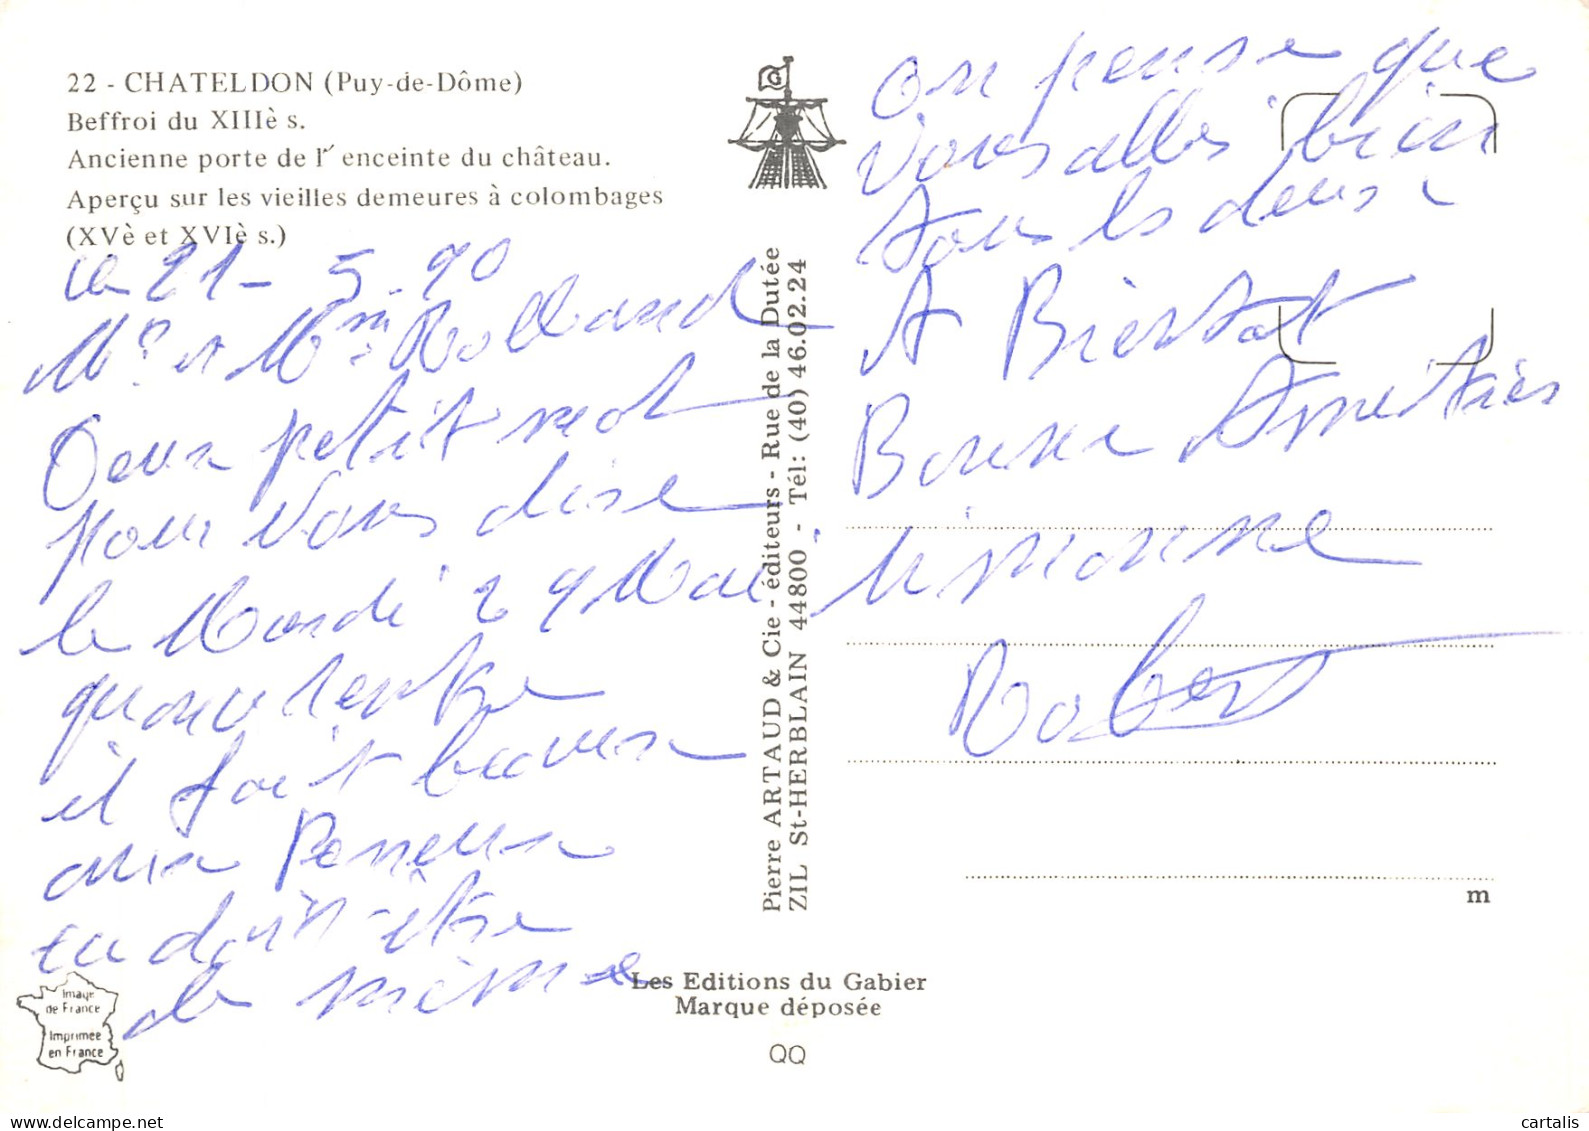 22 - CHATELDON (Puy-de-Dôme)
Beffroi du XIIIè s.
Ancienne porte de l' enceinte du château.
Aperçu sur les vieilles demeures à colombages
(XVè et XVIè s.)
le 21 - 5 - 90
Mr et Mme Rolland
Deux petit mot
pour vous dise
le Mardi 29 Mai
il fait beaux
aux
ca doit être
de même
G
Pierre ARTAUD & Cie - éditeurs - Rue de la Dutée
ZIL St-HERBLAIN 44800 - Tél: (40) 46.02.24
On pense que
vous allés bien
tous les deux
A Bientot
Bonne Amitiés
Simonne
Robert
m
Image
de France
Imprimée
en France
Les Editions du Gabier
Marque déposée
QQ
cartalis